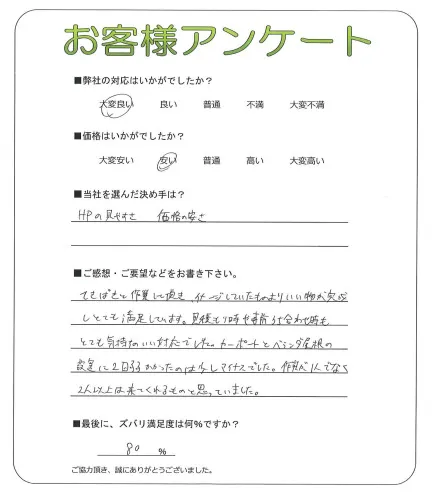 お客様アンケート
■弊社の対応はいかがでしたか？
大変良い 良い 普通 不満 大変不満
■価格はいかがでしたか？
大変安い 安い 普通 高い 大変高い
■当社を選んだ決め手は？
HPの見やすさ 価格の安さ
■ご感想・ご要望などをお書き下さい。
てきぱきと作業して頂き、イメージしていたものよりいい物が完成
しとても満足しています。見積もり時や事前打合わせ時も
とても気持のいい対応でした。カーポートとベランダ屋根の
設置に2日かかったのは少しマイナスでした。作業が1人でなく
2人以上は来てくれるものと思っていました。
■最後に、ズバリ満足度は何％ですか？
80 ％
ご協力頂き、誠にありがとうございました。